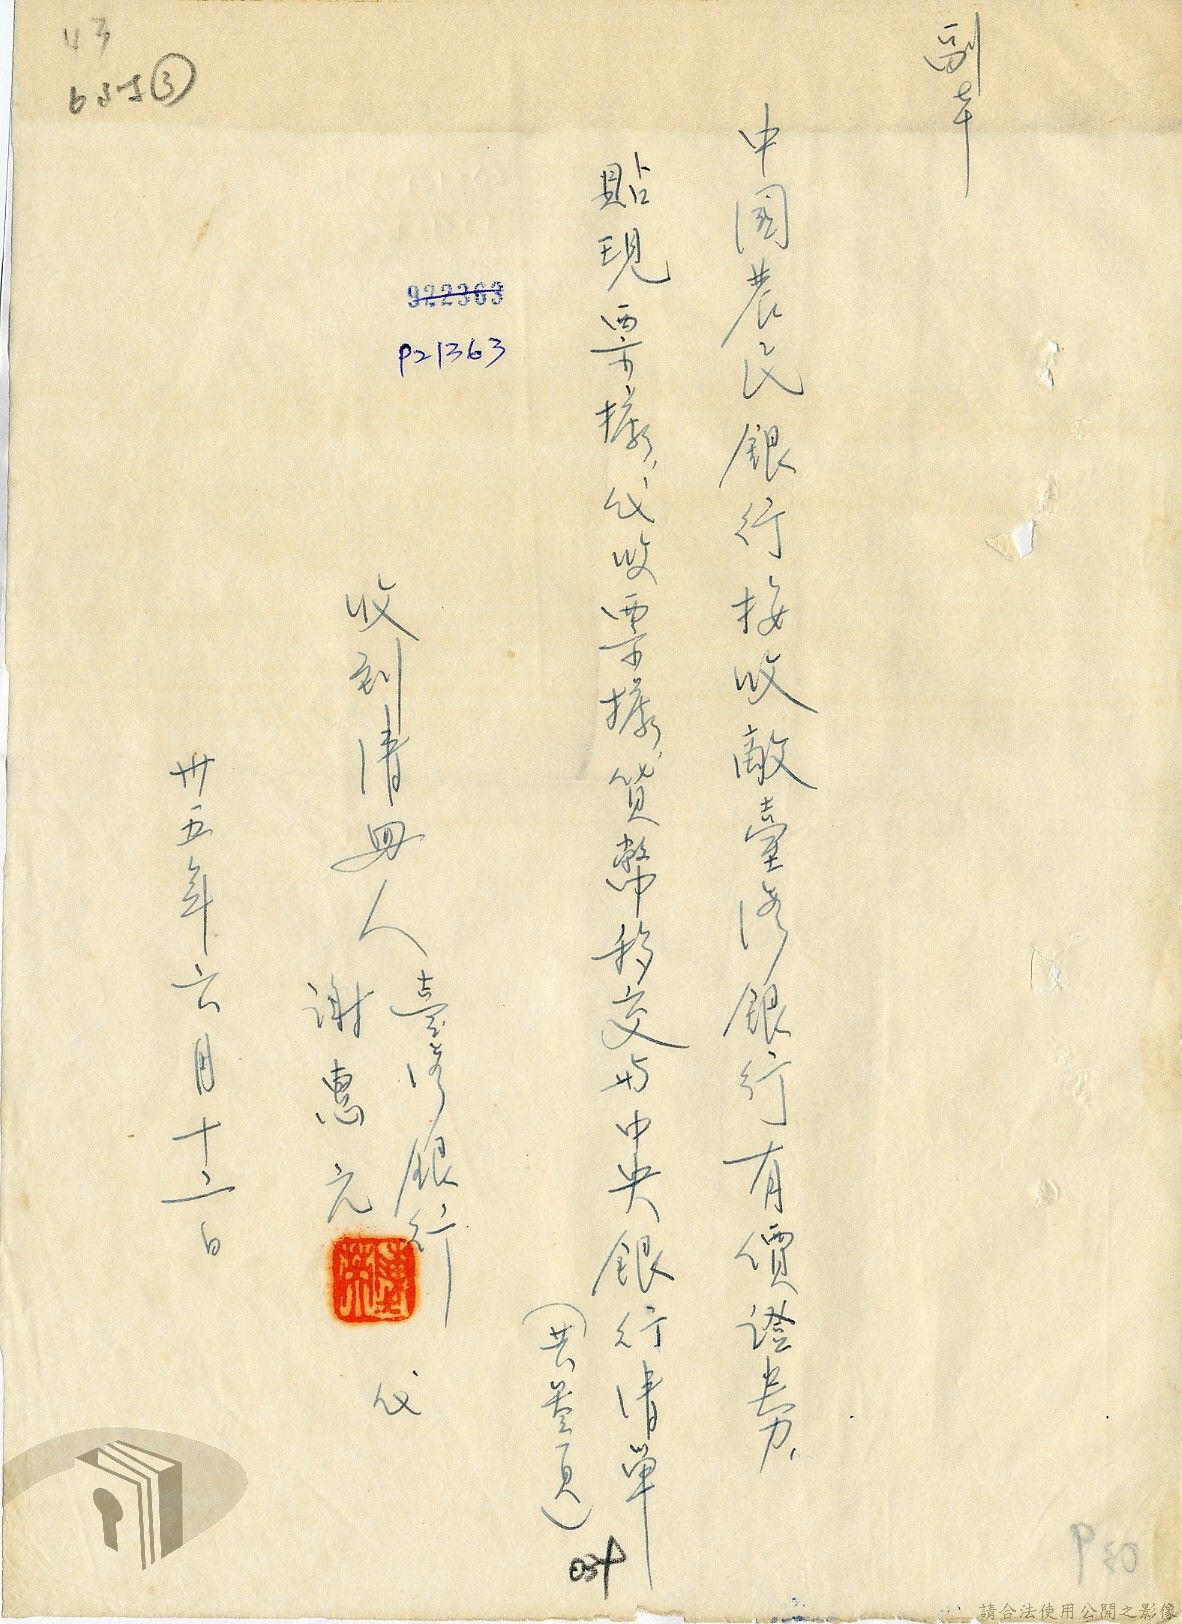 副本
中國農民銀行接收敵臺灣銀行有價證券、
貼現票據、代收票據、貨幣移交与中央銀行清單
(共叁頁)
922363
P21363
收到清冊人
臺灣銀行
謝惠元
代
卅五年六月十二日
43
③
034
請合法使用公開之影像